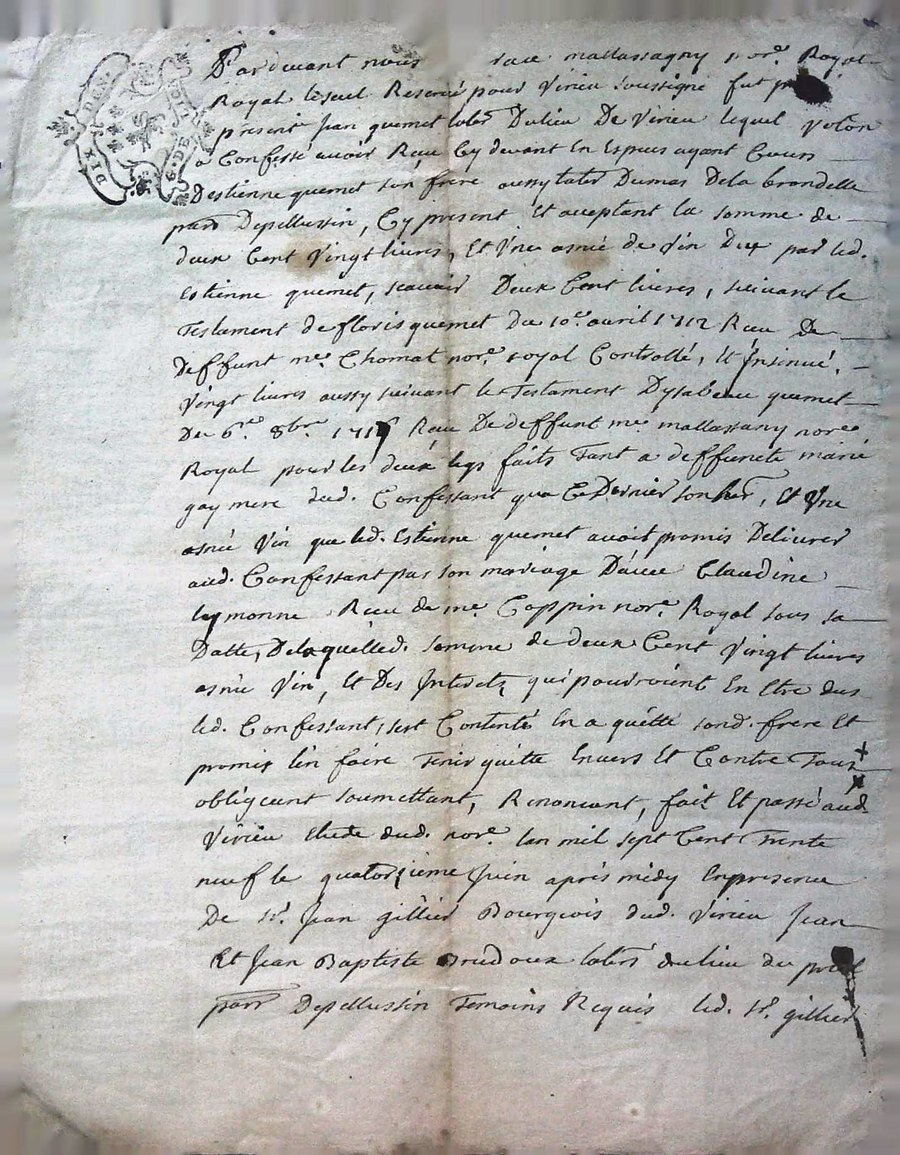 DIX DEN
G. DE
Pardevant nous mallassagny nore. Royal
Royal lesuel Reservé pour Virieu soussigné fut
present Jean quemet labr Dulieu De Virieu lequel
a Confessé avoir Receu Cy devant En Espèces ayant Cours
Destienne quemet son frere aussy labr Dumas Dela brondelle
parr Depellussin, Cy present Et aceptant la somme de
deux Cent Vingt livres, Et Vne asnée de vin Deux par led.
Estienne quemet, scavoir Deux Cent livres, suivant le
Testament de floris quemet Du 10e. avril 1712 Receu De
deffunt me. Chomat nore. royal Controllé, Et Insinué,
Vingt livres aussy suivant le Testament Dysabeau quemet
De 6me. 8bre. Receu De deffunt me. mallassany nore.
Royal pour les deux legs faits Tant a deffuncte marie
gay mere dud. Confessant qua Ce Dernier Et Vne
asnée Vin que led. Estienne quemet avoit promis Delivrer
aud. Confessant par son mariage Davec Claudine
Receu de me. Coppin nore. Royal sous sa
Datte, Delaquelled. somme de deux Cent Vingt livres
asnée Vin, Et Des Interets qui pourroient En Etre dus
led. Confessant, sest Contenté En a quitté sond. frere Et
promis len faire Tenir quitte Envers Et Contre Tous
obligeant soumettant, Renoncant, fait Et passé aud.
Virieu Etude dud. nore. lan mil sept Cent Trente
neuf le quatorzième Juin après midy Enpresence
De sr. Jean gillier Bourgeois dud. Virieu Jean
Et Jean Baptiste labrs dulieu du
parr Depellussin Temoins Requis led. sr. gillier